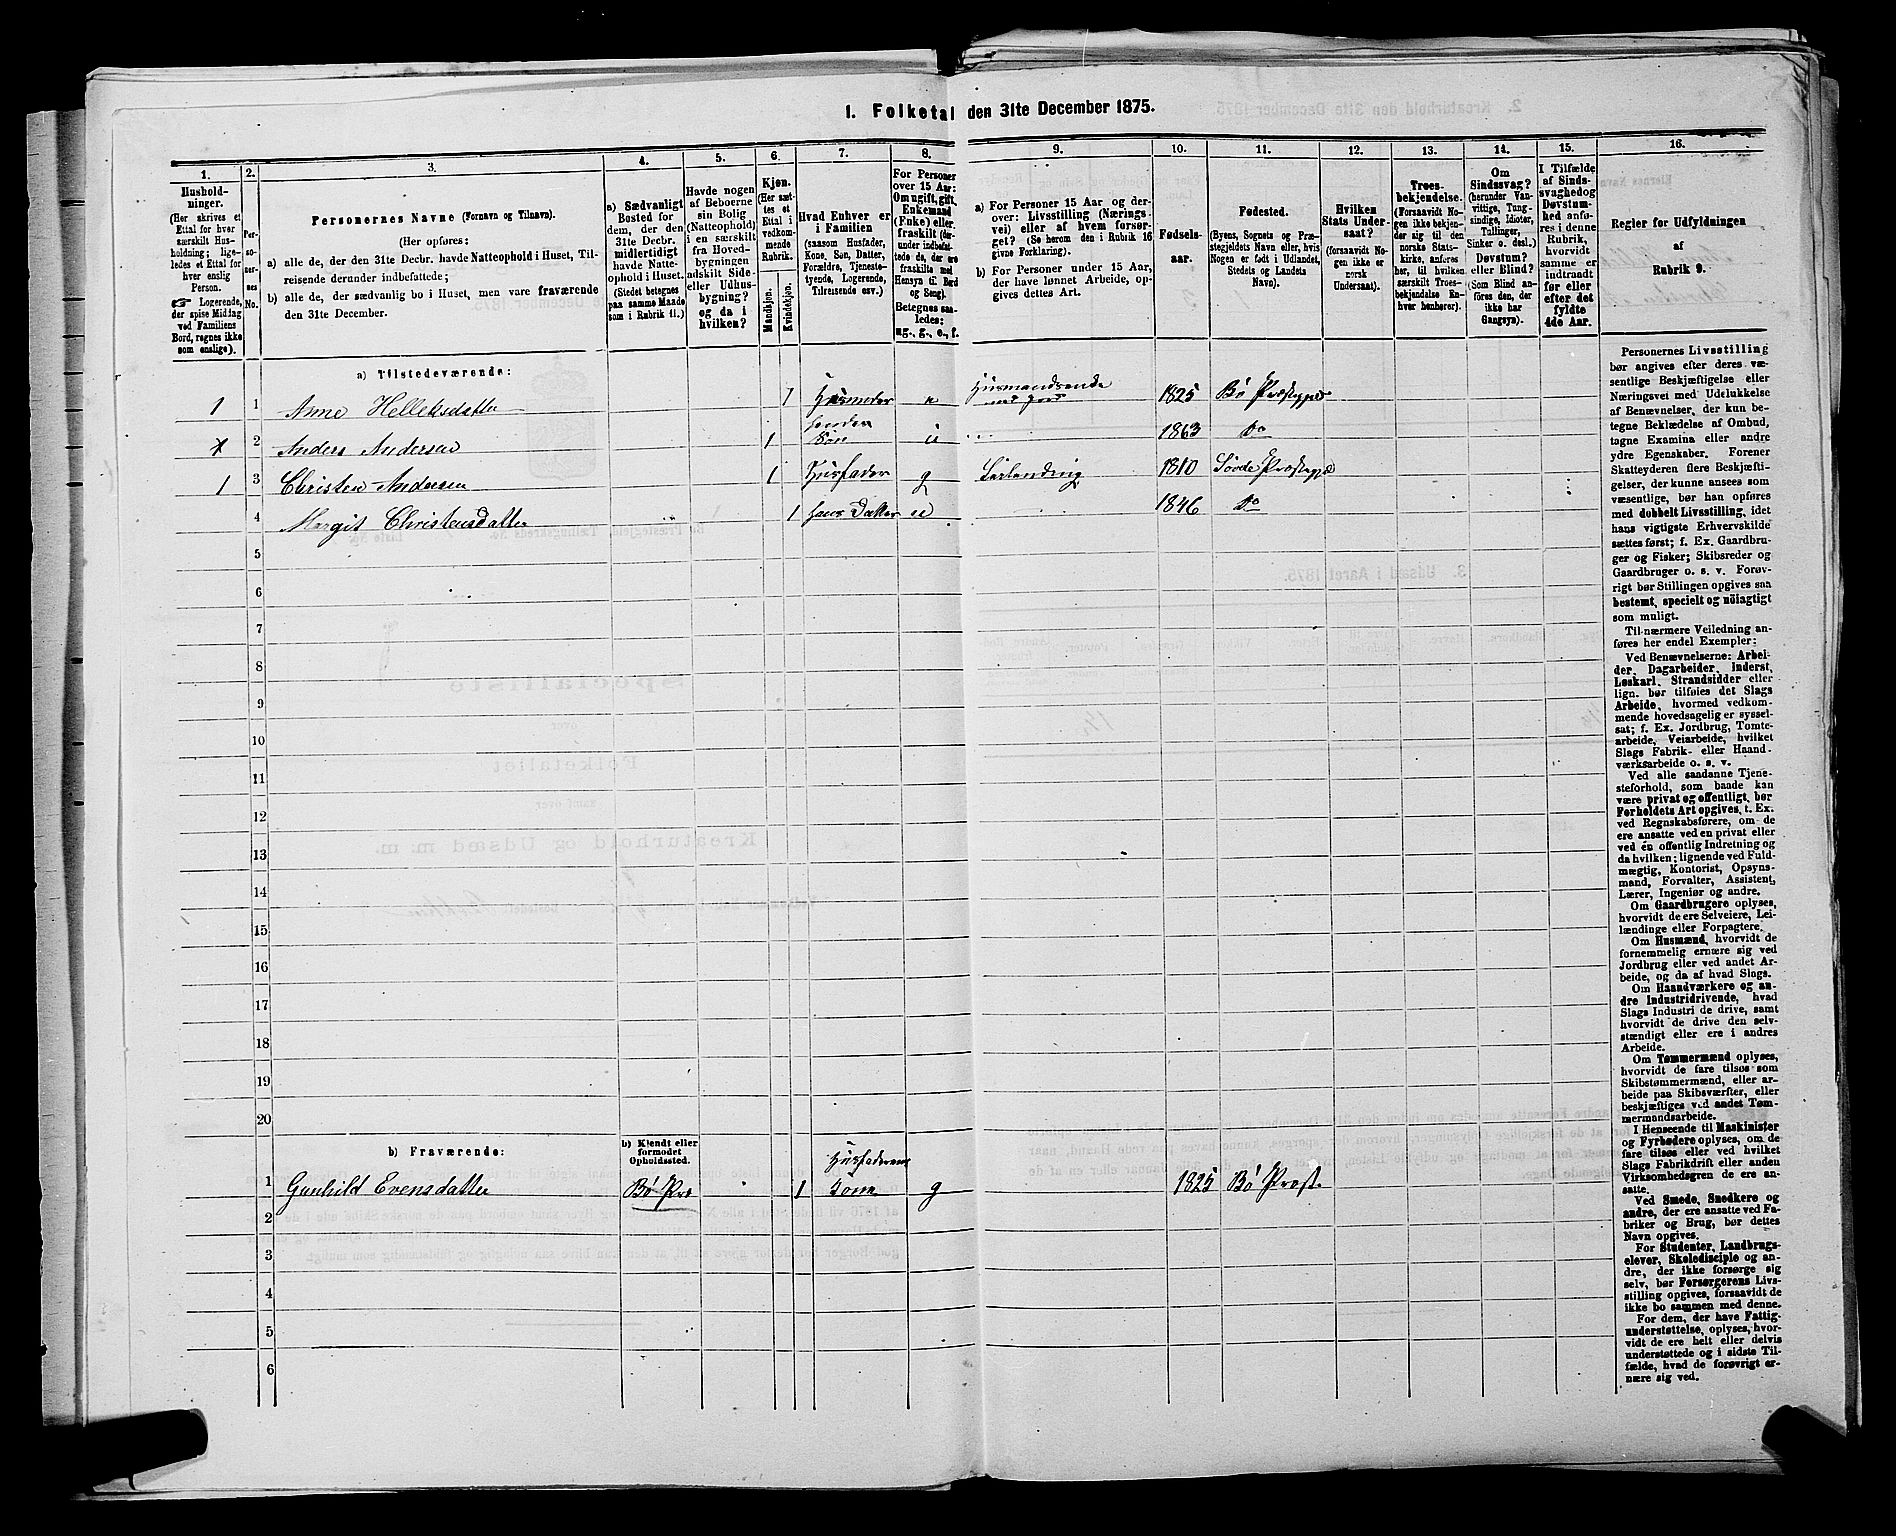 1. Folketal den 31te December 1875.
1. 2. 3. 4. 5. 6. 7. 8. 9. 10. 11. 12. 13. 14. 15. 16.
Hushold-
ninger.
(Her skrives et
Ettal for hver
særskilt Hus-
holdning; lige-
ledes et Ettal for
hver enslig
Person.
☞ Logerende,
der spise Middag
ved Familiens
Bord, regnes ikke
som enslige).
Per-
so-
ner-
nes
No.
Personernes Navne (Fornavn og Tilnavn).
(Her opføres:
a) alle de, der den 31te Decbr. havde Natteophold i Huset, Til-
reisende derunder indbefattede;
b) alle de, der sædvanlig bo i Huset, men vare fraværende
den 31te December.
a) Sædvanligt
Bosted for
dem, der den
31te Decbr.
midlertidigt
havde Natte-
ophold i Huset.
(Stedet betegnes
paa samme Maade
som i Rubrik 11.)
Havde nogen
af Beboerne
sin Bolig
(Natteophold)
i en særskilt
fra Hoved-
bygningen
adskilt Side-
eller Udhus-
bygning?
og da i
hvilken?
Kjøn.
(Her sæt-
tes et
Ettal i
vedkom-
mende
Rubrik.)
Mandkjøn.
Kvindekjøn.
Hvad Enhver er
i Familien
(saasom Husfader,
Kone, Søn, Datter,
Forældre, Tjeneste-
tyende, Logerende,
Tilreisende osv.)
For Personer
over 15 Aar:
Om ugift, gift,
Enkemand
(Enke) eller
fraskilt (der-
under indbefat-
tede de, der ere
fraskilte med
Hensyn til Bord
og Seng).
Betegnes saa-
ledes:
ug., g., e., f.
a) For Personer 15 Aar og der-
over: Livsstilling (Nærings-
vei) eller af hvem forsør-
get? (Se herom den i Rubrik 16
givne Forklaring).
b) For Personer under 15 Aar,
der have lønnet Arbeide, op-
gives dettes Art.
Fødsels-
aar.
Fødested.
(Byens, Sognets og Præ-
stegjeldets Navn eller, hvis
Nogen er født i Udlandet,
Stedets og Landets
Navn).
Hvilken
Stats Under-
saat?
(forsaavidt No-
gen ikke er
norsk
Undersaat).
Troes-
bekjendelse.
(Forsaavidt No-
gen ikke bekjen-
der sig til den
norske Stats-
kirke, anføres
her, til hvilken
særskilt Troes-
bekjendelse En-
hver henhører).
Om
Sindssvag?
(herunder Van-
vittige, Tung-
sindige, Idioter,
Tullinger,
Sinker o. desl.)
Døvstum?
eller Blind?
(Som Blind an-
føres den, der
ikke har
Gangsyn).
I Tilfælde
af Sinds-
svaghed og
Døvstum-
hed anfø-
res i denne
Rubrik,
hvorvidt
samme er
indtraadt
før eller
efter det
fyldte
4de Aar.
Regler for Udfyldningen
af
Rubrik 9.
a) Tilstedeværende:
1 1 Anne Helleksdatter 1 Husmoder e Husmandsenke med Jord 1825 Bø Præstegjæld
2 Anders Andersen 1 hendes Søn u 1863 Do
1 3 Christen Andersen 1 Husfader g 1810 Sovde Præstegjæld
4 Margit Christensdatter 1 hans Datter u 1846 Do
5
6
7
8
9
10
11
12
13
14
15
16
17
18
19
20
b) Fraværende:
b) Kjendt eller
formodet
Opholdssted.
1 Gunhild Evensdatter Bø Præ 1 Husfaderens Kone g 1825 Bø Præst.
2
3
4
5
6
Personernes Livsstilling
bør angives efter deres væ-
sentlige Beskjæftigelse eller
Næringsvei med Udelukkelse
af Benævnelser, der kun be-
tegne Beklædelse af Ombud,
tagne Examina eller andre
ydre Egenskaber. Forener
Skatteyderen flere Beskjæfti-
gelser, der kunne ansees som
væsentlige, bør han opføres
med dobbelt Livsstilling, idet
hans vigtigste Erhvervskilde
sættes først; f. Ex. Gaardbru-
ger og Fisker; Skibsreder og
Gaardbruger o. s. v. Forøv-
rigt bør Stillingen opgives saa
bestemt, specielt og nöiagtigt
som muligt.
Til nærmere Veiledning an-
føres her endel Exempler:
Ved Benævnelserne: Arbei-
der, Dagarbeider, Inderst,
Løskarl, Strandsidder eller
lign. bør tilføies det Slags
Arbeide, hvormed vedkom-
mende hovedsagelig er syssel-
sat; f. Ex. Jordbrug, Tomte-
arbeide, Veiarbeide, hvilket
Slags Fabrik- eller Haand-
værksarbeide o. s. v.
Ved alle saadanne Tjene-
steforhold, som baade kan
være privat og offentligt, bør
Forholdets Art opgives, t. Ex.
ved Regnskabsførere, om de
ere ansatte ved en privat eller
ved en offentlig Indretning og
da hvilken; lignende ved Fuld-
mægtig, Kontorist, Opsyns-
mand, Forvalter, Assistent,
Lærer, Ingeniør og andre.
Om Gaardbrugere oplyses,
hvorvidt de ere Selveiere, Lei-
lændinge eller Forpagtere.
Om Husmænd, hvorvidt de
fornemmelig ernære sig ved
Jordbrug eller ved andet Ar-
beide, og da af hvad Slags.
Om Haandværkere og an-
dre Industridrivende, hvad
Slags Industri de drive, samt
hvorvidt de drive den selv-
stændigt eller ere i andres
Arbeide.
Om Tømmermænd oplyses,
hvorvidt de fare tilsøs som
Skibstømmermænd, eller ar-
beide paa Skibsværfter, eller
beskjæftiges ved andet Tøm-
mermandsarbeide.
I Henseende til Maskinister
og Fyrbødere oplyses, om de
fare tilsøs eller ved hvilket
Slags Fabrikdrift eller anden
Virksomhedsgren de ere an-
satte.
Ved Smede, Snedkere og
andre, der ere ansatte ved Fa-
briker og Brug, bør dettes
Navn opgives.
For Studenter, Landbrugs-
elever, Skoledisciple og an-
dre, der ikke forsørge sig
selv, bør Forsørgerens Livs-
stilling opgives, forsaavidt de
ikke bo sammen med denne.
For dem, der have Fattig-
understøttelse, oplyses, hvor-
vidt de ere helt eller delvis
understøttede og i sidste Til-
fælde, hvad de forøvrigt er-
nære sig ved.